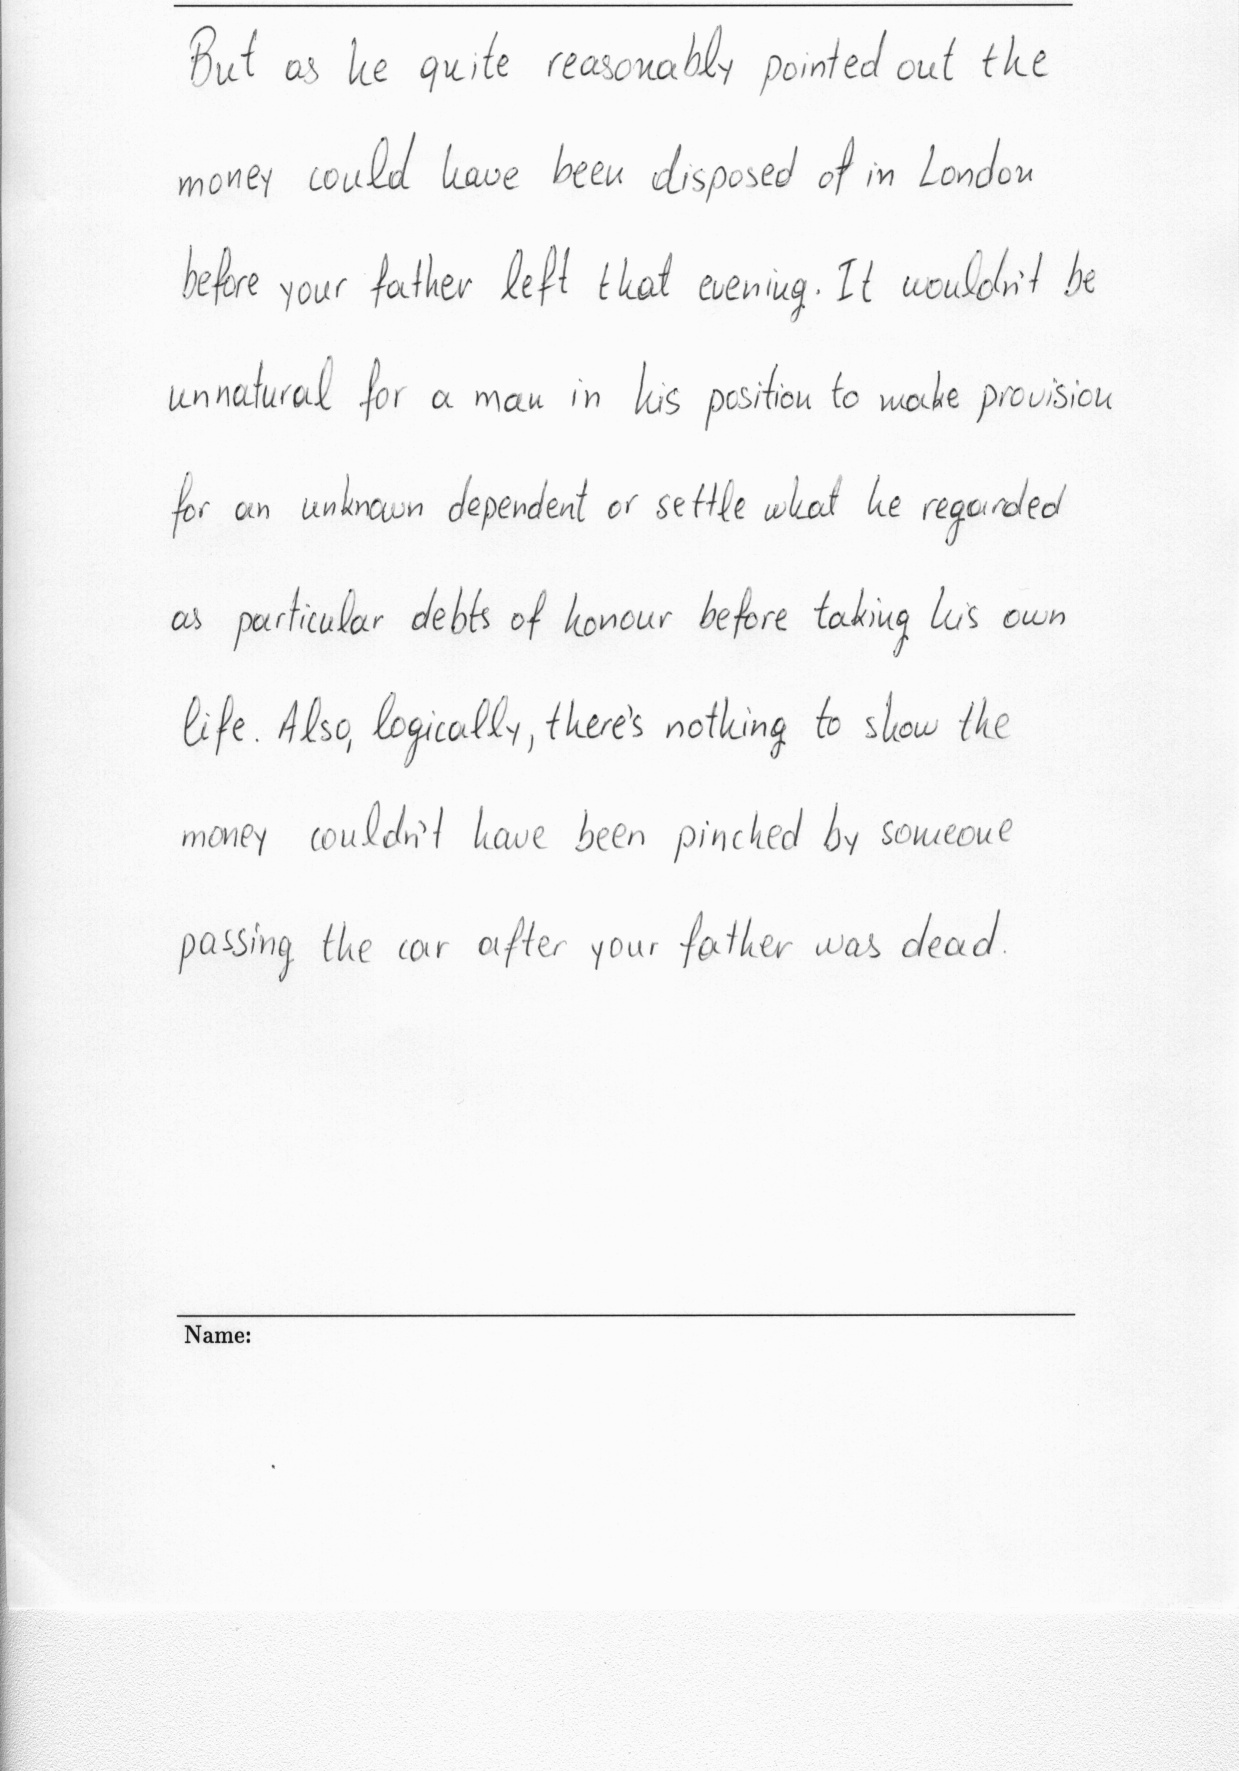 But as he quite reasonably pointed out the
money could have been disposed of in London
before your father left that evening. It wouldn't be
unnatural for a man in his position to make provision
for an unknown dependent or settle what he regarded
as particular debts of honour before taking his own
life. Also, logically, there's nothing to show the
money couldn't have been pinched by someone
passing the car after your father was dead.
Name: